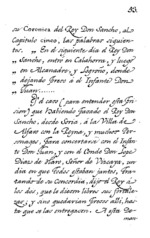 83.
su Coronica del Rey Don Sancho, al
Capitulo cinco, las palabras siguien-
tes.
„ En el siguiente dia el Rey Don
„ Sancho, entró en Calahorra, y luego
„ en Alcanadre, y Logroño, donde
„ dejando Preso à el Infante Don
„ Juan
El caso (para entender esta pri-
cion) que habiendo pasado el Rey Don
Sancho, desde Soria, à la Villa de
Alfaro con la Reyna, y muchos Per-
sonages, para concertarse con el Infan-
te Don Juan, y con el Conde Don Lope
Diaz de Haro, Señor de Vizcaya, un
dia en que todos estaban juntos, tra-
tando de su Concordia, dijo el Rey à
los dos, que le diesen libres sus fortale-
zas, y sino quedarian Presos alli, has-
ta que se las entregacen. A esta De-